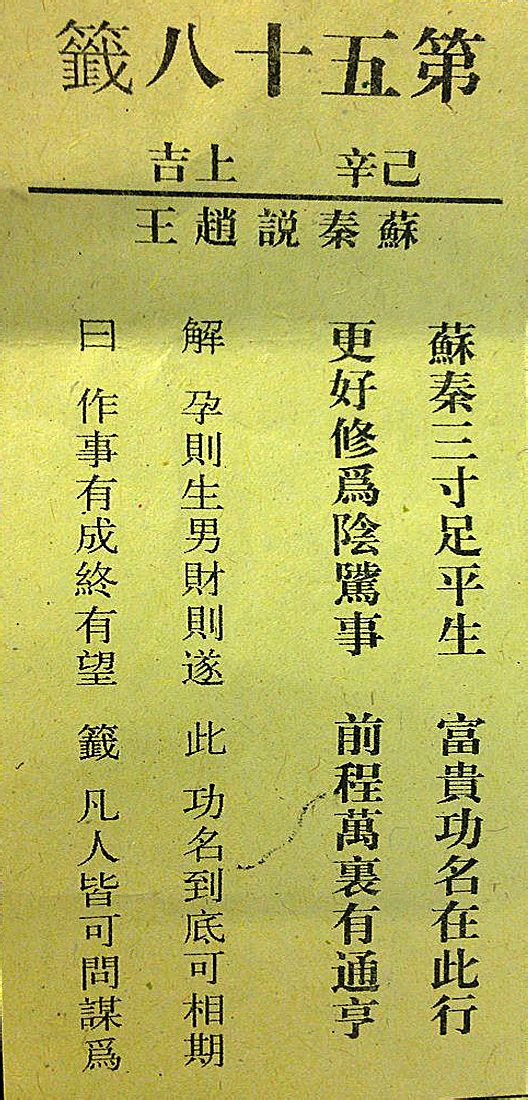 第五十八籤
己辛　上吉
蘇秦説趙王
蘇秦三寸足平生　富貴功名在此行
更好修爲陰騭事　前程萬裏有通亨
解　孕則生男財則遂　此　功名到底可相期
曰　作事有成終有望　籤　凡人皆可問謀爲